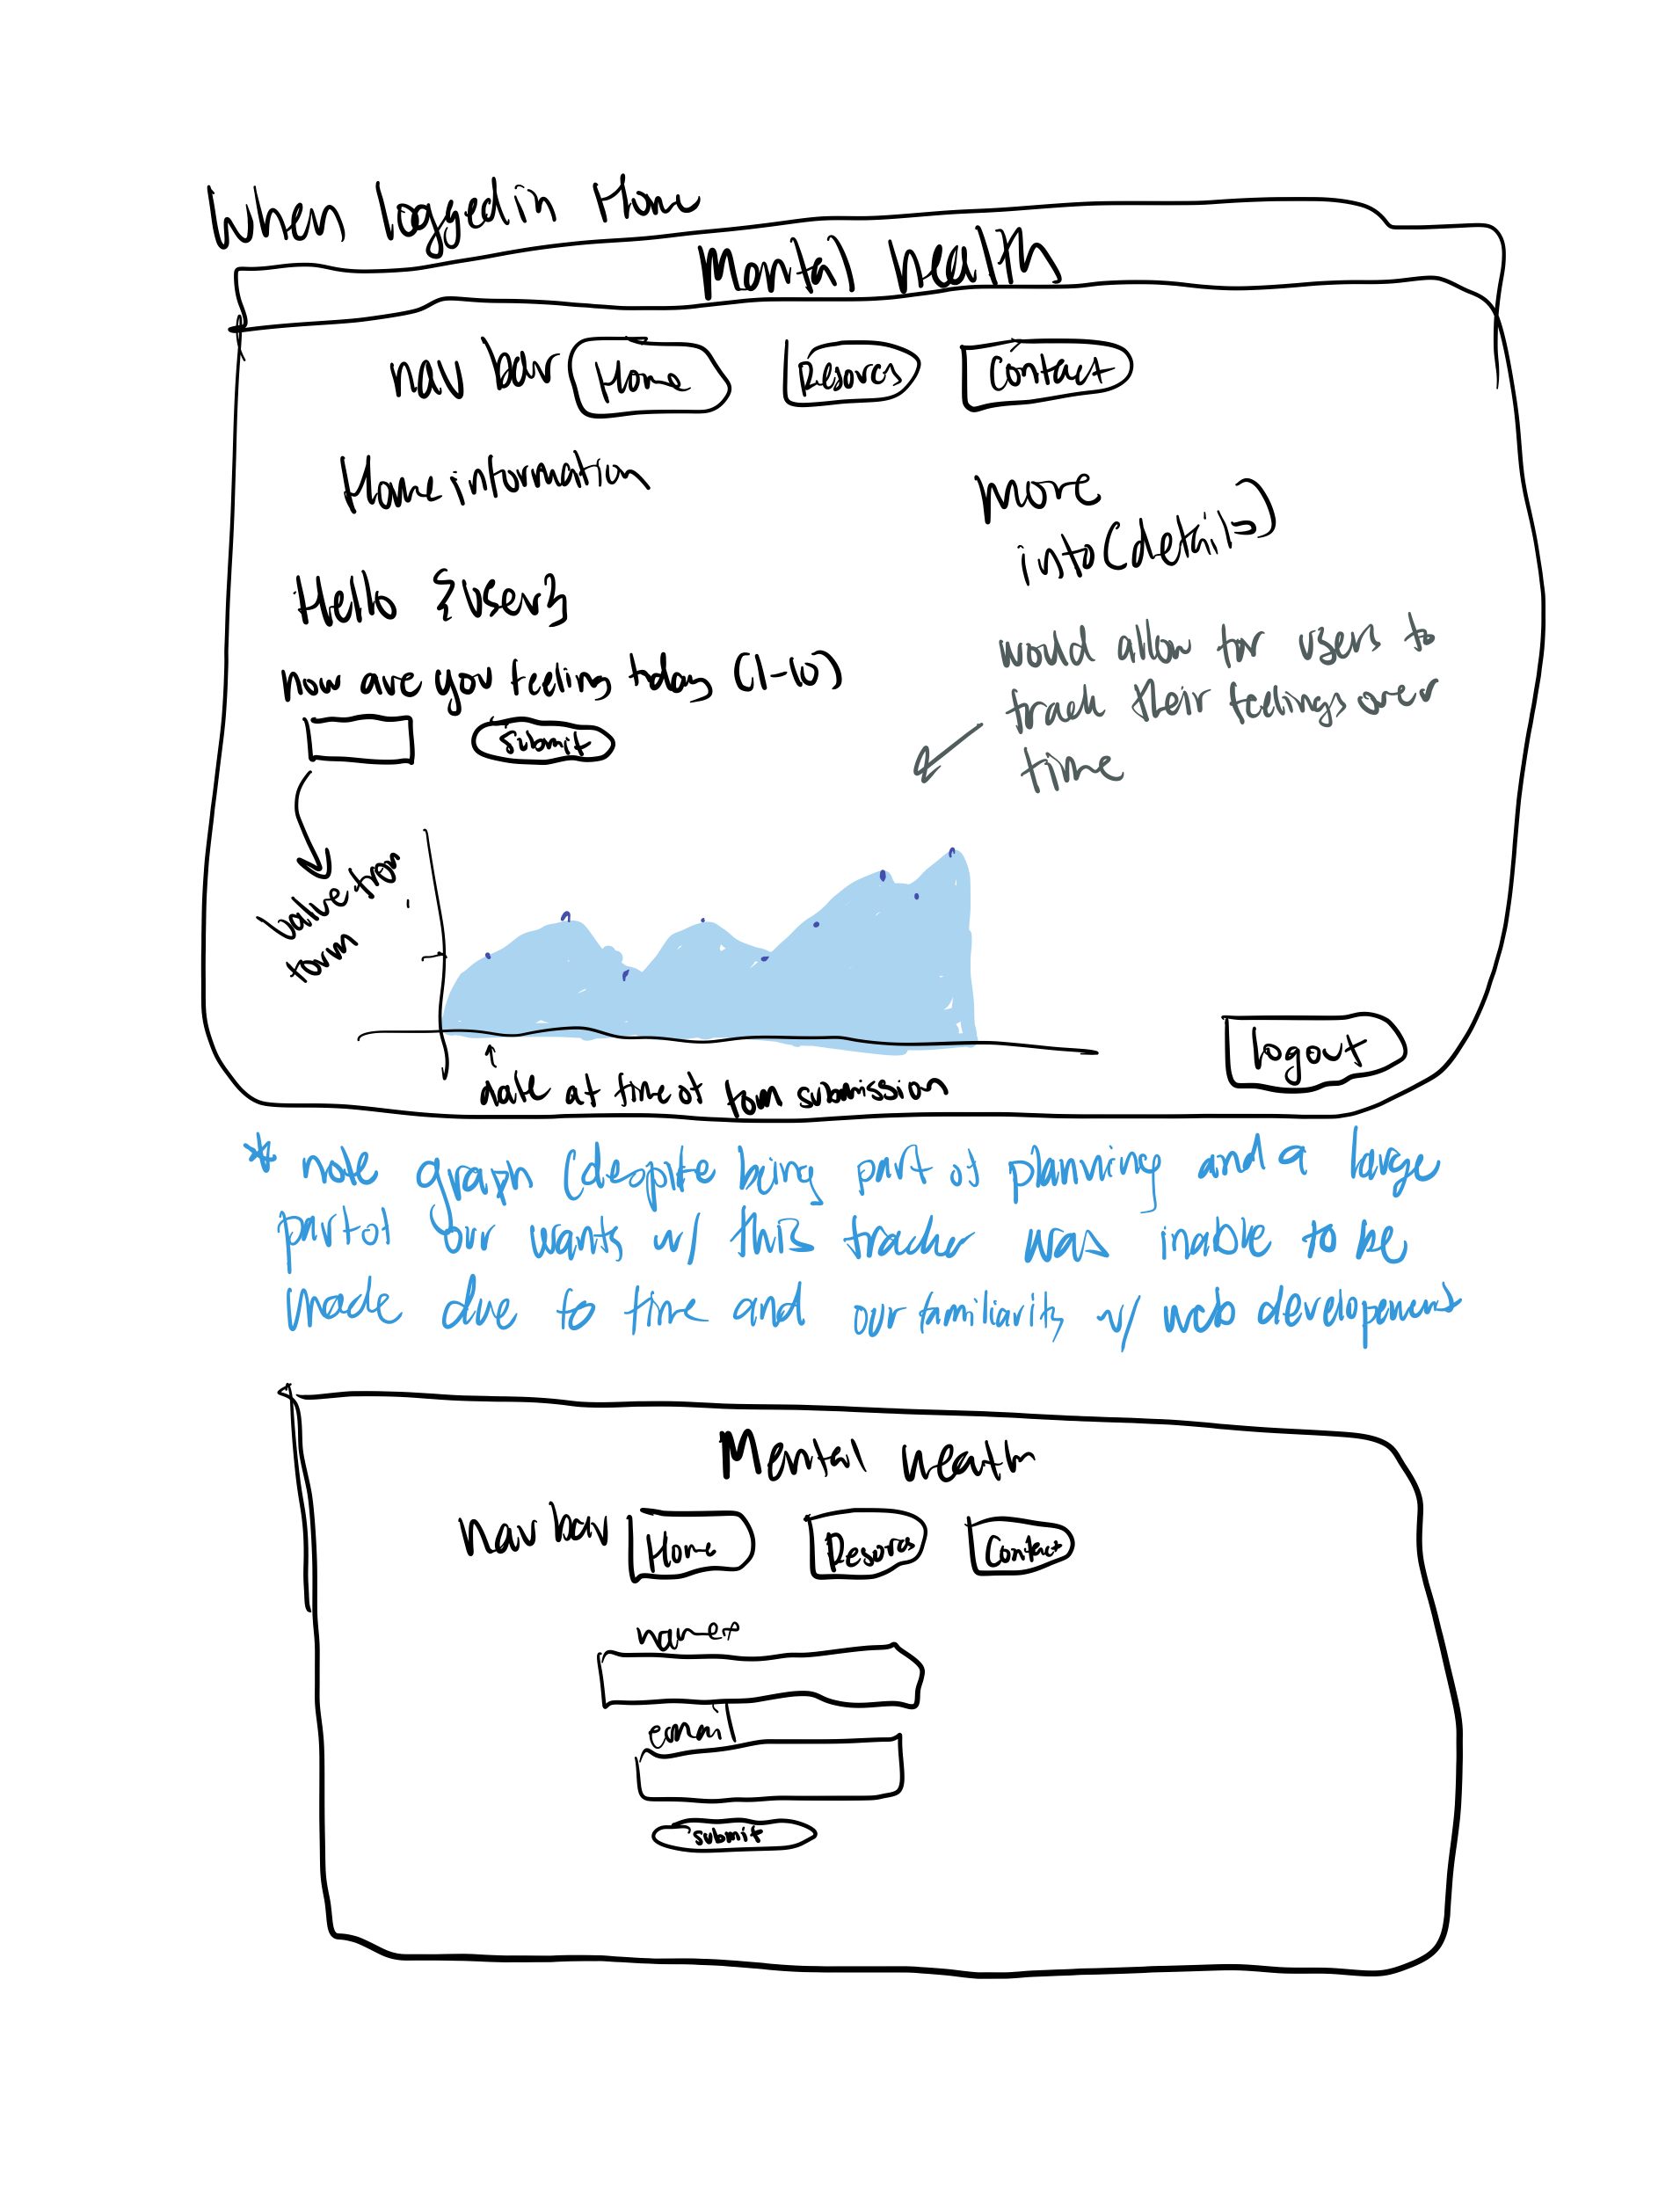 When logged in Home
Mental health
nav bar Home Resources Contact
Home information
more
info (details)
Hello {User}
how are you feeling today (1-10)
submit
would allow for users to
track their feelings over
time
value from
form
date at time of form submission
logout
* note graph (despite being part of planning and a large
part of our wants w/ this tracker was inable to be
made due to time and our familiarity w/ web development
Mental Health
Nav bar Home Resources Contact
name
email
submit